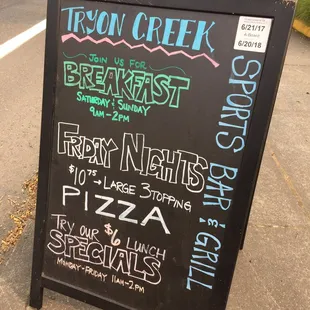 TRYON CREEK
6/21/17
A-Board
6/20/18
JOIN US FOR
BREAKFAST
SATURDAY & SUNDAY
9AM-2PM
SPORTS BAR & GRILL
FRIDAY NIGHTS
$10.75 → LARGE 3 TOPPING
PIZZA
TRY OUR $6 LUNCH
SPECIALS
MONDAY-FRIDAY 11AM-2PM